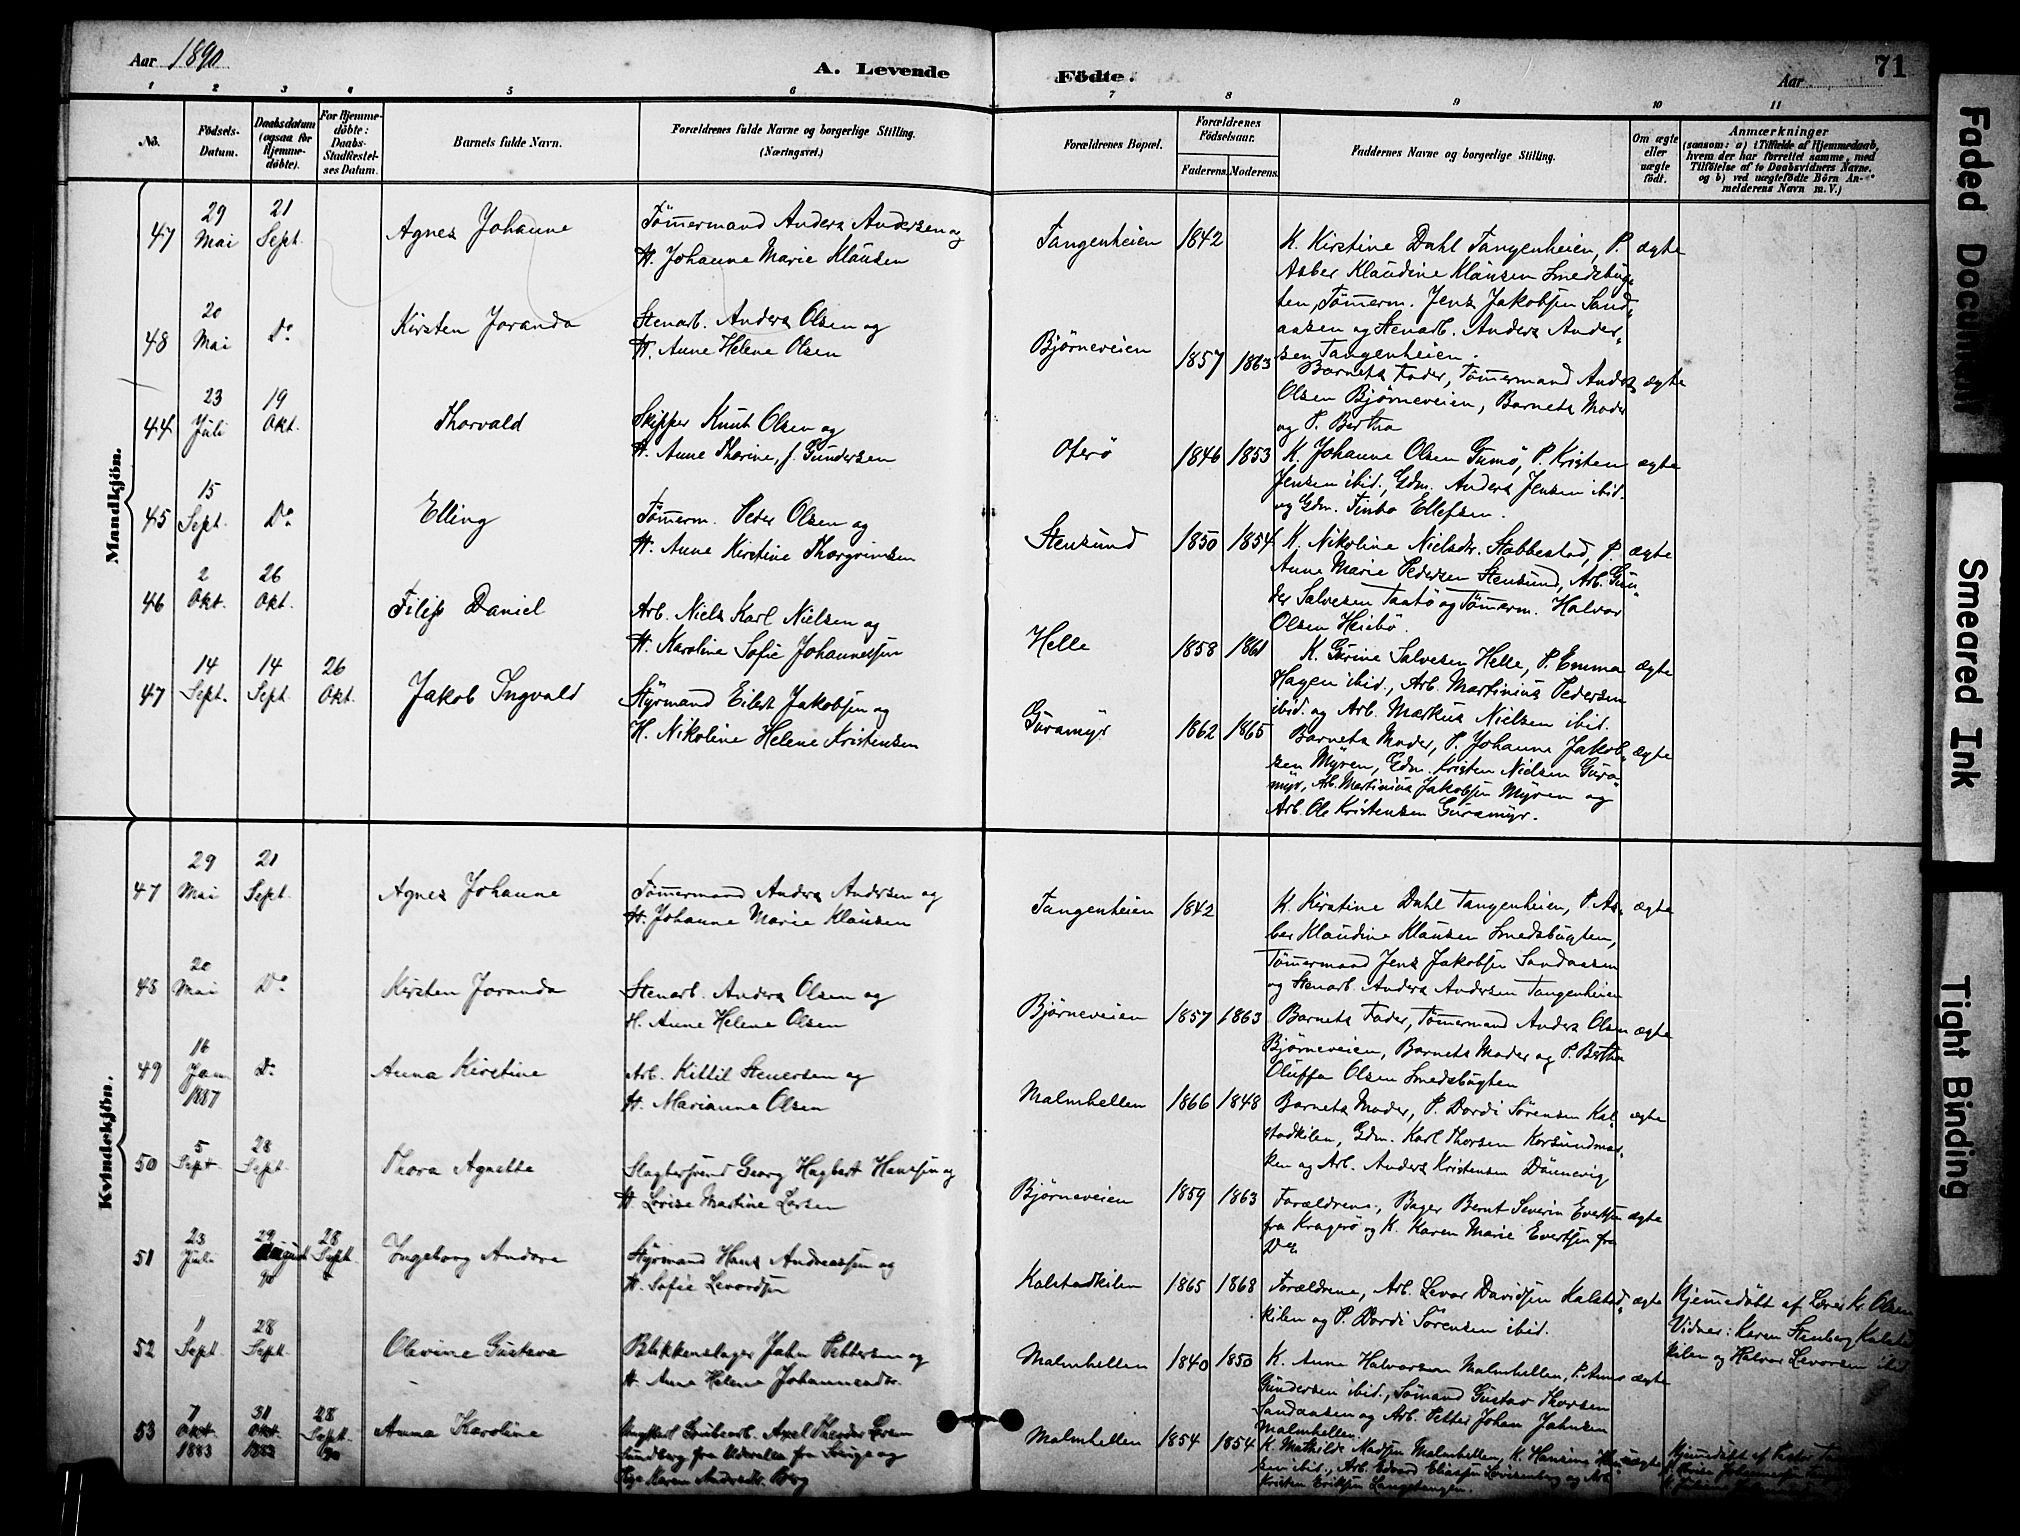 Aar 1890
A. Levende
Födte.
Aar
71
1 2 3 4 5 6 7 8 9 10 11
No.
Födsels-
Datum.
Daabsdatum
(ogsaa for
Hjemme-
döbte).
For Hjemme-
döbte:
Daabs-
Stadfæstel-
ses Datum.
Barnets fulde Navn.
Forældrenes fulde Navne og borgerlige Stilling.
(Næringsvei.)
Forældrenes Bopæl.
Forældrenes
Födselsaar.
Faderens. Moderens.
Faddernes Navne og borgerlige Stilling.
Om ægte
eller
uægte
født.
Anmærkninger
(saasom: a) i Tilfælde af Hjemmedaab,
hvem der har forrettet samme, med
Tilföielse af to Daabsvidners Navne,
og b) ved uægtefödte Börn An-
melderens Navn m. V.)
Mandkjön.
47
29
Mai
21
Sept.
Agnes Johanne
Tömermand Anders Andersen og
H. Johanne Marie Klausen
Tangenheien
1842
K. Kirstine Dahl Tangenheien, P.
Asber Klaudine Klausen Smedsbug-
ten, Tömerm. Jens Jakobsen Sand-
aasen og Stenarb. Anders Ander-
sen Tangenheien.
ægte
48
20
Mai
Do
Kirsten Joranda
Stenarb. Anders Olsen og
H. Anne Helene Olsen
Björneveien
1857 1863
Barnets Fader, Tömermand Anders
Olsen Björneveien, Barnets Moder
og P. Bertha
ægte
44
23
Juli
19
Okt.
Thorvald
Skipper Knut Olsen og
H. Anne Thorine, f. Gundersen
Oterö
1846 1853
K. Johanne Olsen Gumö, P. Kristen
Jensen ibid., Gdm. Anders Jensen ibid.
og Gdm. Finbo Ellefsen.
ægte
45
15
Sept.
Do
Elling
Tömerm. Peder Olsen og
H. Anne Kirstine Thorgrimsen
Stensund
1850 1854
K. Nikoline Nielsdr. Stabbestad, P.
Anne Marie Pedersen Stensund, Arb. Gun-
der Salvesen Taatö og Tömerm. Halvor
Olsen Heibö.
ægte
46
2
Okt.
26
Okt.
Filip Daniel
Arb. Niels Karl Nielsen og
H. Karoline Sofie Johannessen
Helle
1858 1861
K. Gurine Salvesen Helle, P. Emma
Hagen ibid., Arb. Martinius Pedersen
ibid. og Arb. Markus Nielsen ibid.
ægte
47
14
Sept.
14
Sept.
26
Okt.
Jakob Ingvald
Styrmand Eilert Jakobsen og
H. Nikoline Helene Kristensen
Guramyr
1862 1865
Barnets Moder, P. Johanne Jakob-
sen Myren, Gdm. Kristen Nielsen Gura-
myr, Arb. Martinius Jakobsen Myren og
Arb. Ole Kristensen Guramyr.
ægte
Kvindekjön.
47
29
Mai
21
Sept.
Agnes Johanne
Tömermand Anders Andersen og
H. Johanne Marie Klausen
Tangenheien
1842
K. Kirstine Dahl Tangenheien, P. As-
ber Klaudine Klausen Smedsbugten,
Tömermand Jens Jakobsen Sandaasen
og Stenarb. Anders Andersen Tangenheien
ægte
48
20
Mai
Do
Kirsten Joranda
Stenarb. Anders Olsen og
H. Anne Helene Olsen
Björneveien
1857 1863
Barnets Fader, Tömermand Anders Olsen
Björneveien, Barnets Moder og P. Bertha
Oluffa Olsen Smedsbugten
ægte
49
16
Jan.
1887
Do
Anna Kirstine
Arb. Kittil Stenersen og
H. Marianne Olsen
Malmhellen
1866 1848
Barnets Moder, P. Dordi Sörensen Kal-
stadkilen, Gdm. Karl Thorsen Korsundmar-
ken og Arb. Anders Kristensen Dönnevig
ægte
50
5
Sept.
28
Sept.
Thora Agnethe
Slagtersvend Georg Hagbart Hansen og
H. Lovise Martine Larsen
Björneveien
1859 1863
Forældrene, Bager Bernt Severin Evertsen
fra Kragerö og K. Karen Marie Evertsen fra
Do
ægte
51
23
Juli
29
August
90
28
Sept.
Ingeborg Andora
Styrmand Hans Andreassen og
H. Sofie Levordsen
Kalstadkilen
1865 1868
Forældrene, Arb. Levor Davidsen Kalstad-
kilen og P. Dordi Sörensen ibid.
ægte
Hjemmedöbt af Lærer Kr. Olsen
Vidner: Karen Stenberg Kalstad
kilen og Halvor Levorsen ibid
52
1
Sept.
28
Sept.
Olevine Gustava
Blikkenslager Jahn Pettersen og
H. Anne Helene Johannesdr.
Malmhellen
1840 1850
K. Anne Halvorsen Malmhellen, P. Anne
Gundersen ibid., Sömand Gustav Thorsen
Sandaasen og Arb. Petter Johan Jahnsen
Malmhellen.
ægte
53
7
Okt.
1883
31
Okt.
1883
28
Sept.
90
Anna Karoline
Ungkarl Grubearb. Axel Theodor Larsen
Sundberg fra Uderallen fra Sverige og
Pige Karen Andersdr. Berg
Malmhellen
1854 1854
K. Mathilde Madsen Malmhellen, K. Hansine Han-
sen ibid., Arb. Edvard Eliassen Lovisenberg og Arb.
Kristen Eriksen Langetangen.
uægte
Hjemmedöbt af
Faded Document
Smeared Ink
Tight Binding